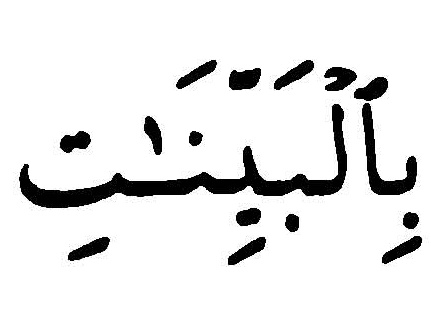 بِٱلْبَيِّنَـٰتِ